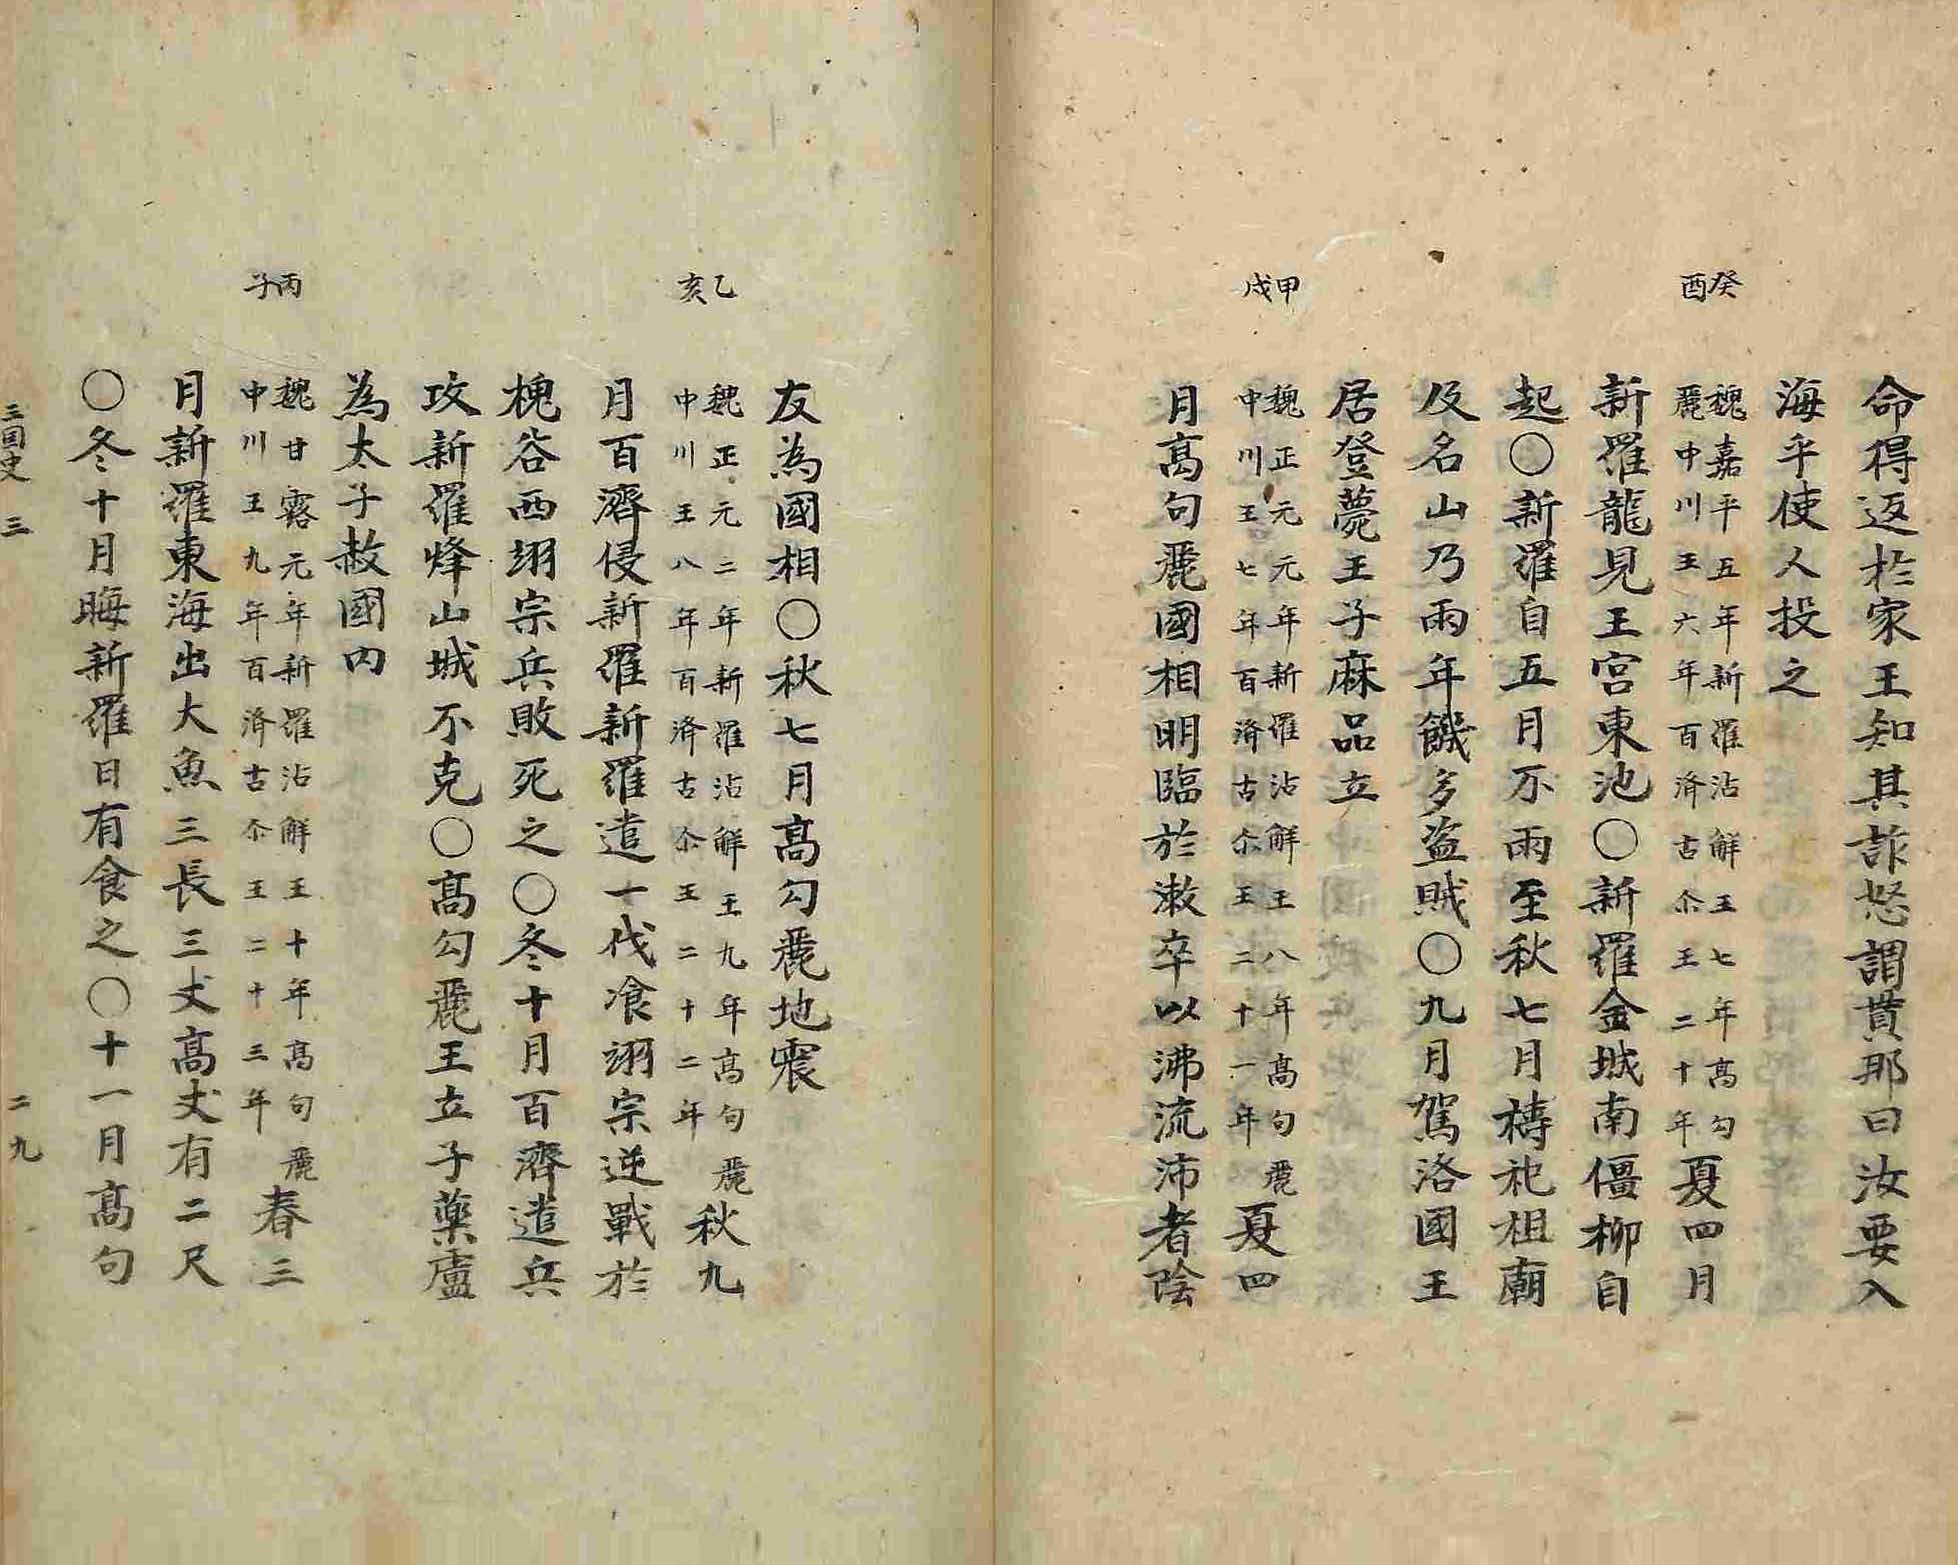 命得返於家王知其詐怒謂貫那曰汝要入
海乎使人投之
癸酉
魏嘉平五年新羅沾解王七年高勾
麗中川王六年百济古尒王二十年夏四月
新羅龍見王宮東池〇新羅金城南僵柳自
起〇新羅自五月不雨至秋七月禱祀祖廟
及名山乃雨年饑多盗賊〇九月駕洛國王
居登薨王子麻品立
甲戌
魏正元元年新羅沾解王八年高句麗
中川王七年百济古尒王二十一年夏四
月高句麗國相明臨於漱卒以沸流沛者陰
友為國相〇秋七月高勾麗地震
乙亥
魏正元二年新羅沾解王九年高句麗
中川王八年百济古尒王二十二年秋九
月百濟侵新羅新羅遣一伐飡翊宗逆戰於
槐谷西翊宗兵敗死之〇冬十月百濟遣兵
攻新羅烽山城不克〇高勾麗王立子藥盧
為太子赦國内
丙子
魏甘露元年新羅沾解王十年高句麗
中川王九年百济古尒王二十三年春三
月新羅東海出大魚三長三丈高丈有二尺
〇冬十月晦新羅日有食之〇十一月高句
三国史 三 二九